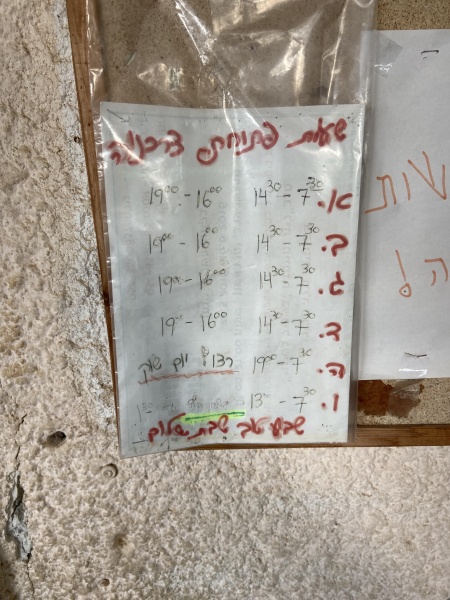 שעות פתיחת צרכניה
א. 7³⁰ - 14³⁰ 16⁰⁰ - 19⁰⁰
ב. 7³⁰ - 14³⁰ 16⁰⁰ - 19⁰⁰
ג. 7³⁰ - 14³⁰ 16⁰⁰ - 19⁰⁰
ד. 7³⁰ - 14³⁰ 16⁰⁰ - 19⁰⁰
ה. 7³⁰ - 19⁰⁰ יום שוק
ו. 7³⁰ - 13⁰⁰
שבת שלום
שות
ה!